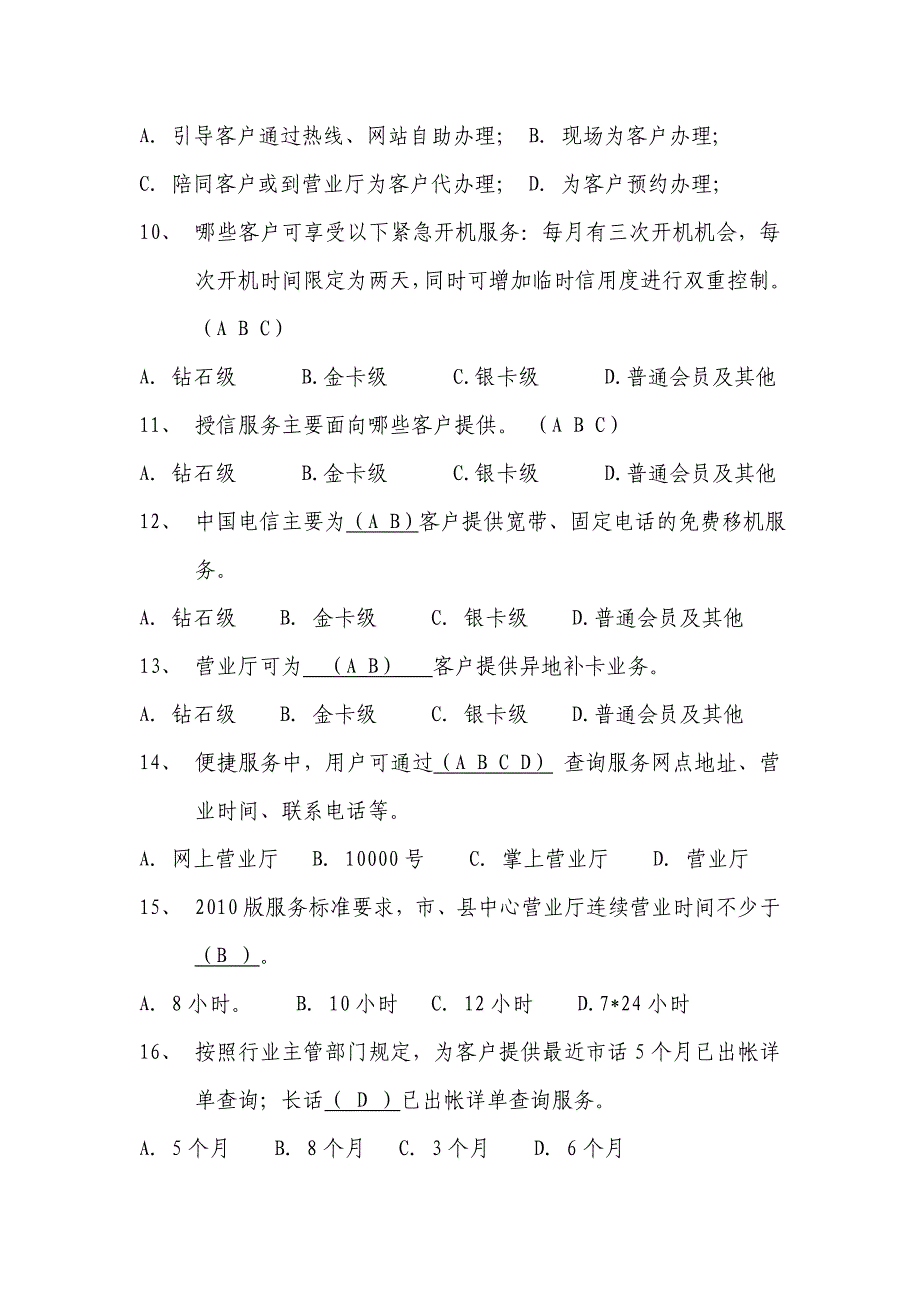 A. 引导客户通过热线、网站自助办理; B. 现场为客户办理;
C. 陪同客户或到营业厅为客户代办理; D. 为客户预约办理;
10、 哪些客户可享受以下紧急开机服务：每月有三次开机机会，每
次开机时间限定为两天，同时可增加临时信用度进行双重控制。
（A B C）
A. 钻石级 B.金卡级 C.银卡级 D.普通会员及其他
11、 授信服务主要面向哪些客户提供。 （A B C）
A. 钻石级 B.金卡级 C.银卡级 D.普通会员及其他
12、 中国电信主要为（A B）客户提供宽带、固定电话的免费移机服
务。
A. 钻石级 B. 金卡级 C. 银卡级 D.普通会员及其他
13、 营业厅可为 （A B） 客户提供异地补卡业务。
A. 钻石级 B. 金卡级 C. 银卡级 D.普通会员及其他
14、 便捷服务中，用户可通过（A B C D） 查询服务网点地址、营
业时间、联系电话等。
A. 网上营业厅 B. 10000号 C. 掌上营业厅 D. 营业厅
15、 2010版服务标准要求，市、县中心营业厅连续营业时间不少于
（B ）。
A. 8小时。 B. 10小时 C. 12小时 D.7*24小时
16、 按照行业主管部门规定，为客户提供最近市话5个月已出帐详
单查询；长话（ D ）已出帐详单查询服务。
A. 5个月 B. 8个月 C. 3个月 D. 6个月